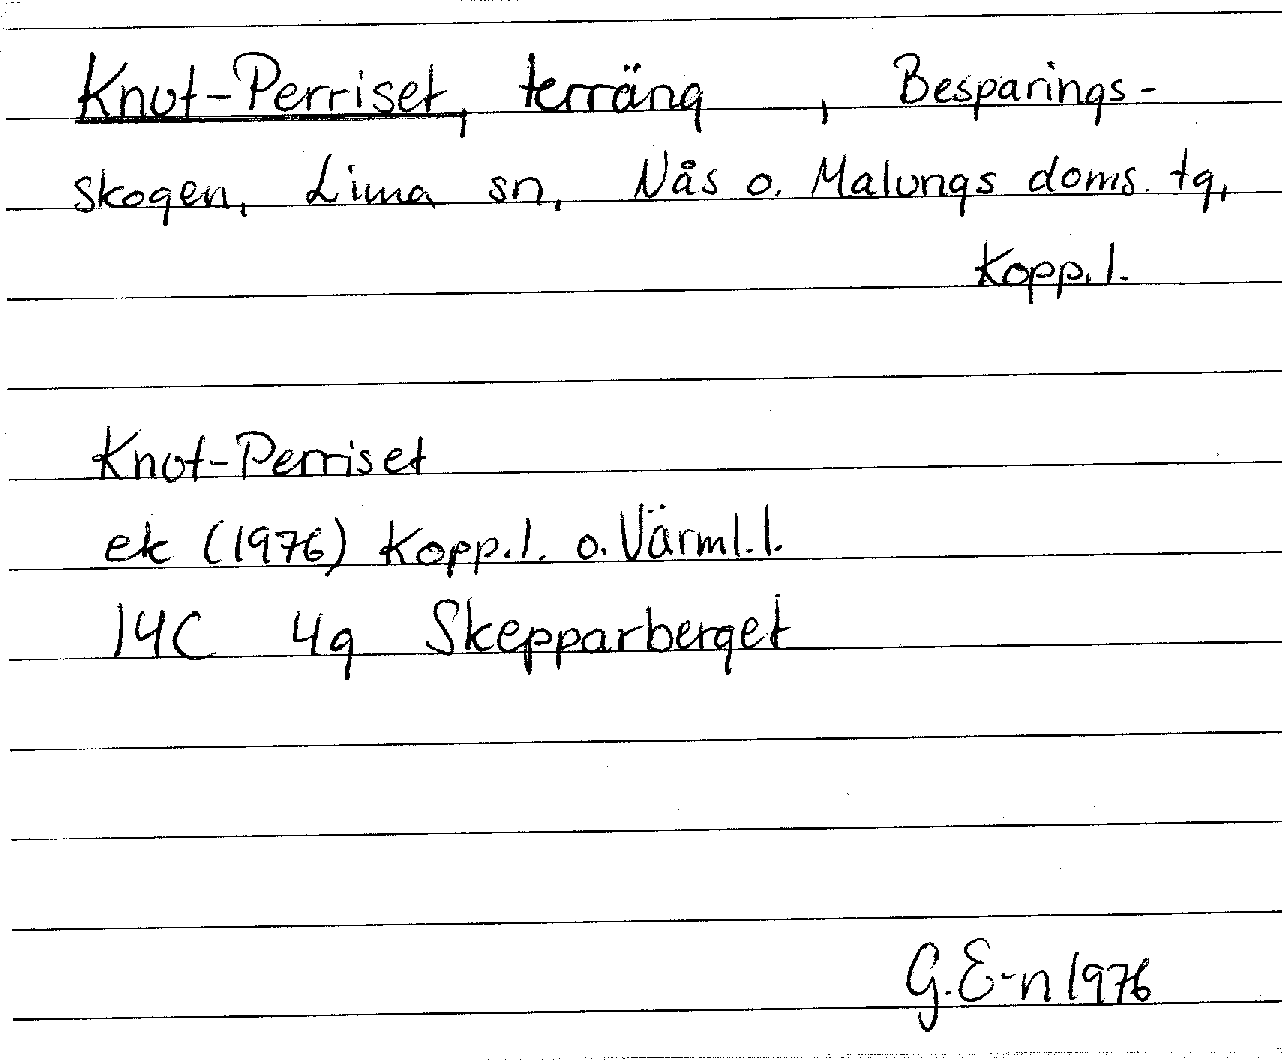 Knut-Perriset, terräng , Besparings-
skogen, Lima sn, Nås o. Malungs doms. tg,
Kopp.l.
Knut-Perriset
ek (1976) Kopp.l. o. Värml.l.
14C 4g Skepparberget
G.E-n 1976